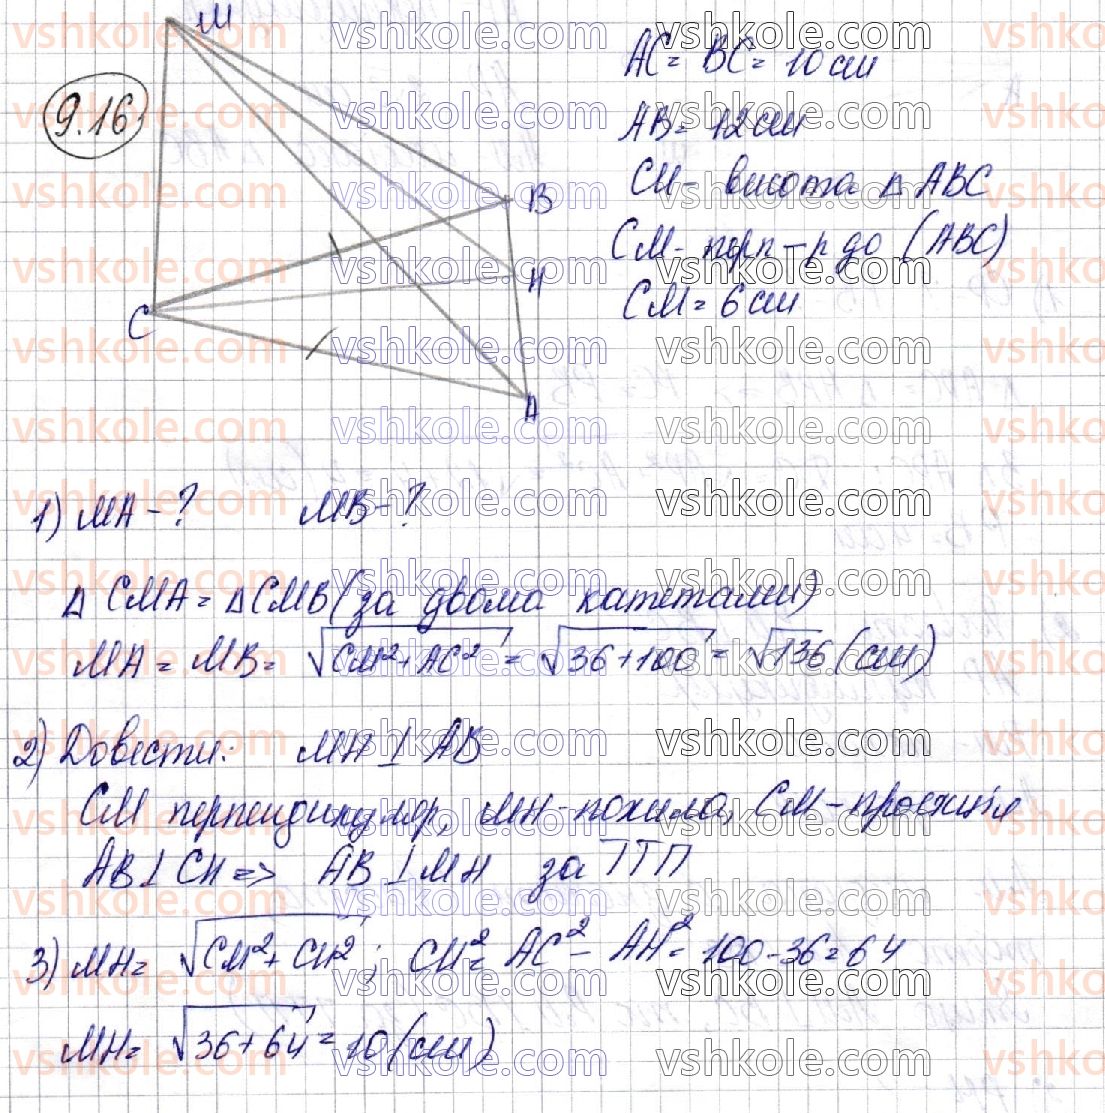 9.16
M
B
H
C
A
AC = BC = 10 см
AB = 12 см
CH - висота △ ABC
CM - перп-р до (ABC)
CM = 6 см
1) MA - ? MB - ?
△ CMA = △ CMB (за двома катетами)
MA = MB = √(CM² + AC²) = √(36+100) = √136 (см)
2) Довести: MH ⊥ AB
CM перпендикуляр, MH - похила, CM - проекція
AB ⊥ CH => AB ⊥ MH за ТТП
3) MH = √(CM² + CH²); CH² = AC² - AH² = 100 - 36 = 64
MH = √(36+64) = 10 (см)
vshkole.com